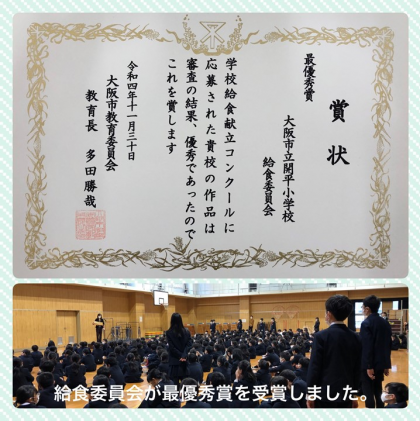 賞状
最優秀賞
大阪市立開平小学校
給食委員会
学校給食献立コンクールに
応募された貴校の作品は
審査の結果、優秀であったので
これを賞します
令和四年十一月三十日
大阪市教育委員会
教育長 多田勝哉
給食委員会が最優秀賞を受賞しました。